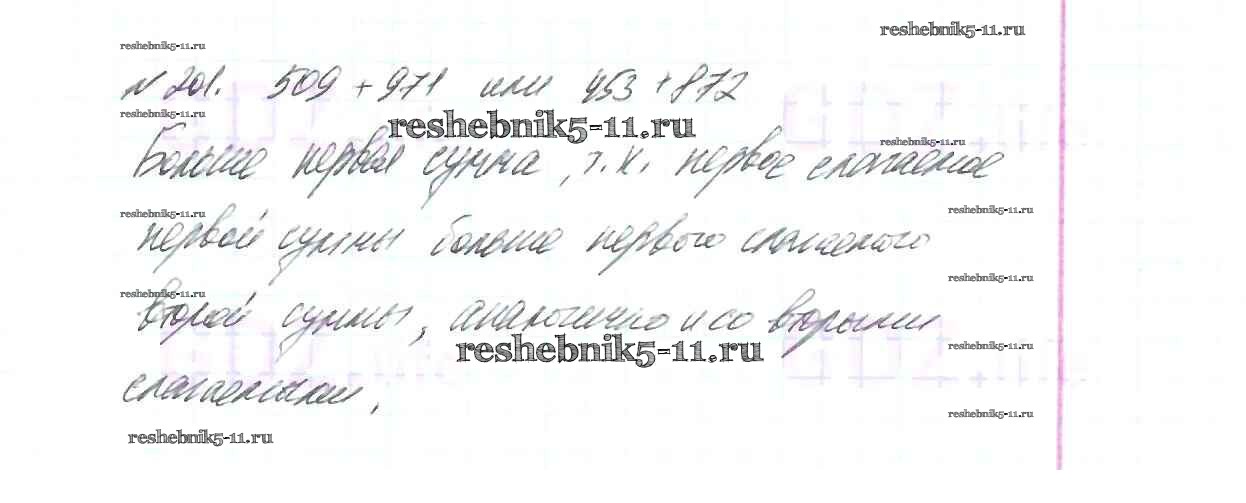 reshebnik5-11.ru
reshebnik5-11.ru
№ 201. 509 + 971 или 453 + 872
reshebnik5-11.ru
reshebnik5-11.ru
reshebnik5-11.ru
Больше первая сумма, т.к. первое слагаемое
reshebnik5-11.ru
reshebnik5-11.ru
первой суммы больше первого слагаемого
reshebnik5-11.ru
reshebnik5-11.ru
второй суммы, аналогично и со вторыми
reshebnik5-11.ru
reshebnik5-11.ru
слагаемыми.
reshebnik5-11.ru
reshebnik5-11.ru